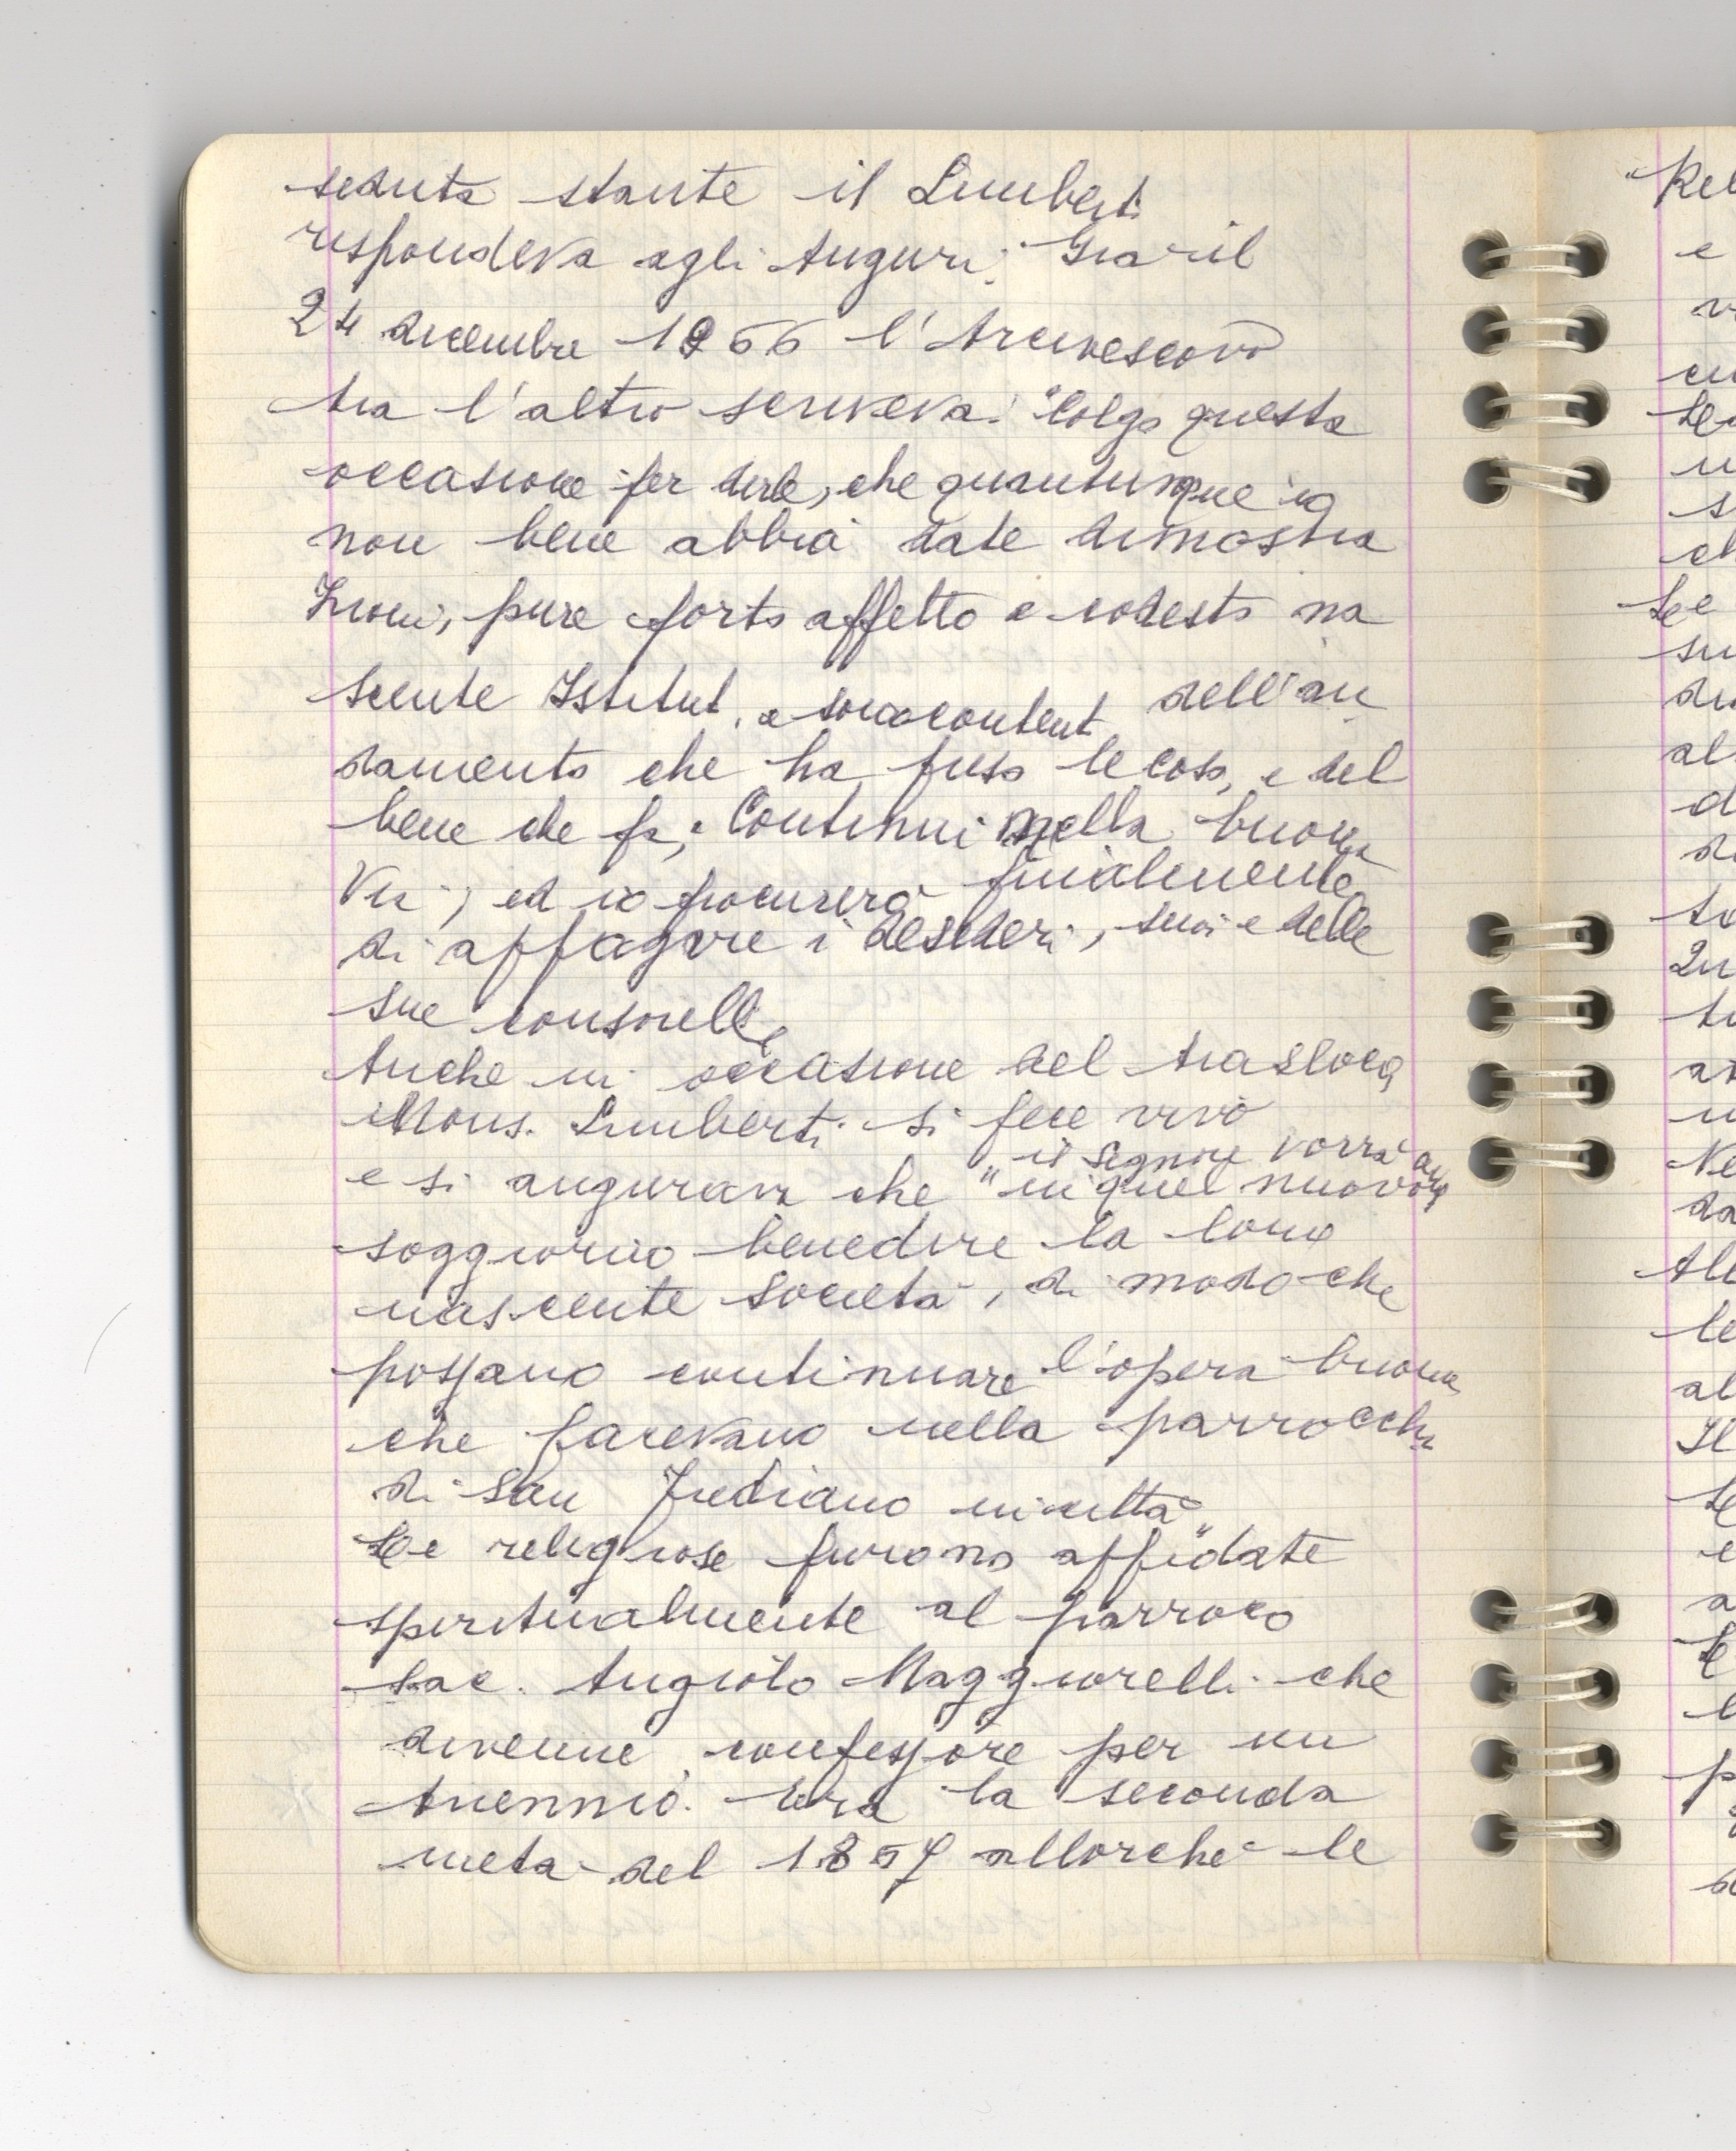 seduta stante il Limberti
rispondeva agli Auguri. Già il
24 dicembre 1966 l'Arcivescovo
tra l'altro scriveva: "Colgo questa
occasione per dirle, che quantunque io
non bene abbia date dimostra
zioni, pure porto affetto a codesto na
scente Istituto, e sono contento dell'an
damento che ha preso le cose, e del
bene che fa; Continui nella buona
Via, ed io procurerò finalmente
di appagare i desideri, suoi e delle
sue consorelle
Anche in occasione del trasloco
Mons. Limberti si fece vivo
il Signore vorrà
e si augurava che "in quel nuovo
soggiorno benedire la loro
nascente società, di modo che
possano continuare l'opera buona
che facevano nella parrocchia
di San Frediano in città"
Le religiose furono affidate
spiritualmente al parroco
sac. Angiolo Maggiorelli che
divenne confessore per un
triennio. Era la seconda
meta del 1857 allorchè le
Rel
e